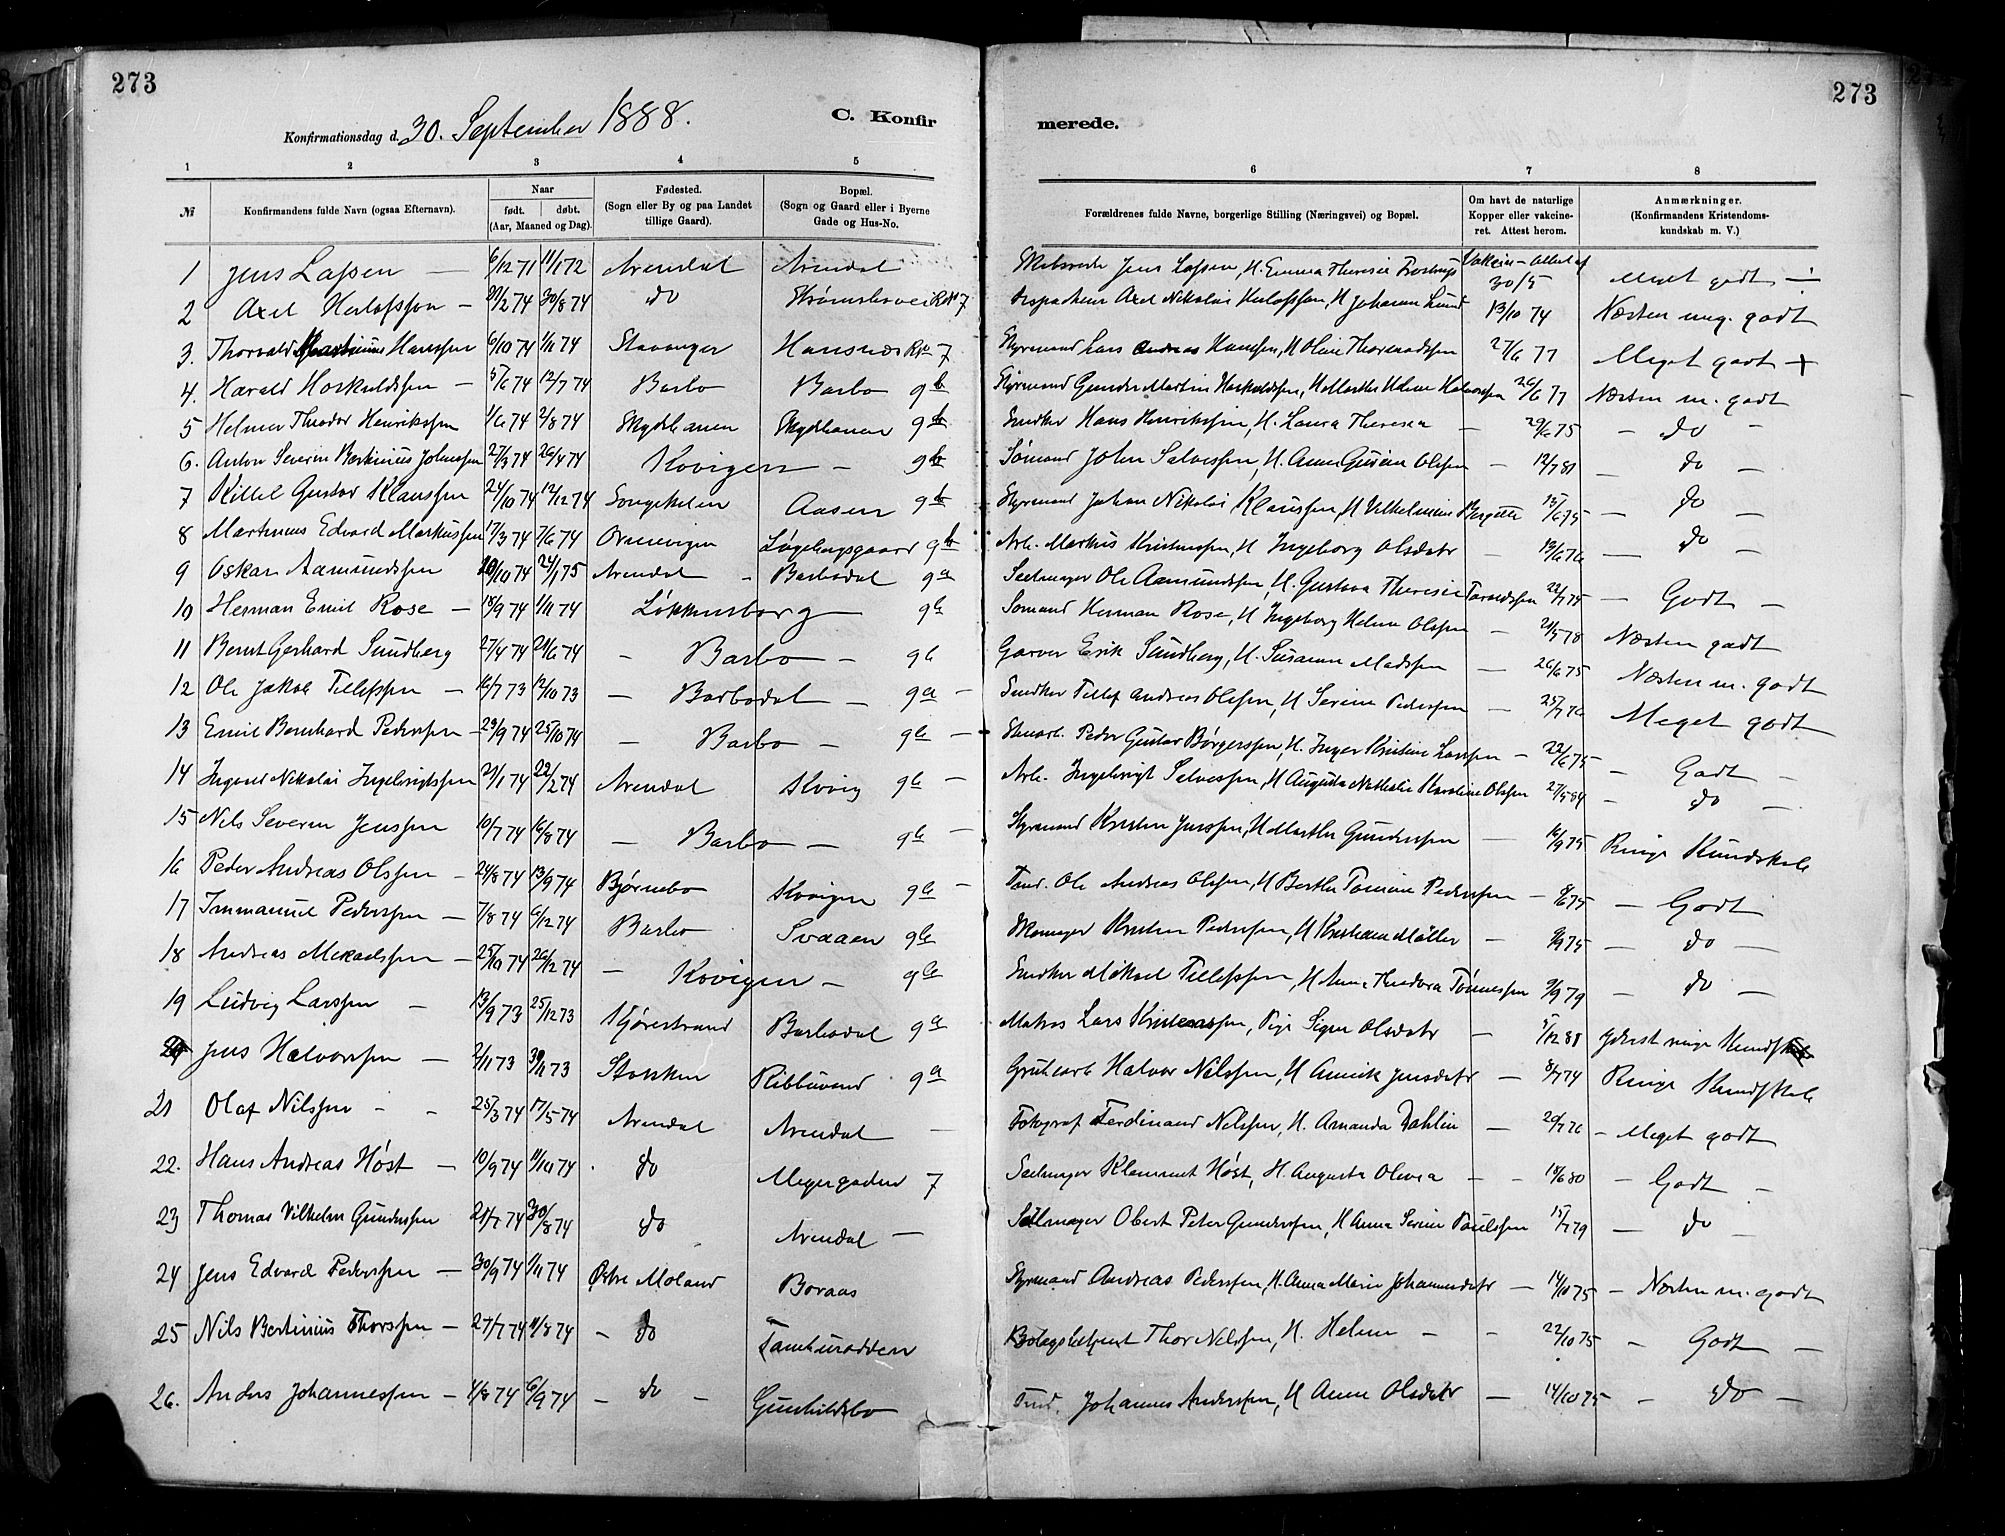 273
273
Konfirmationsdag d. 30. September 1888.
C. Konfir
merede.
1 2 3 4 5
6 7 8
№ Konfirmandens fulde Navn (ogsaa Efternavn). Naar født. døbt. (Aar, Maaned og Dag). Fødested. (Sogn eller By og paa Landet tillige Gaard). Bopæl. (Sogn og Gaard eller i Byerne Gade og Hus-No.
Forældrenes fulde Navne, borgerlige Stilling (Næringsvei) og Bopæl. Om havt de naturlige Kopper eller vakcineret. Attest herom. Anmærkninger. (Konfirmandens Kristendomskundskab m. V.)
1 Jens Lassen — 6/12 71 11/1 72 Arendal Arendal Jens Lassen, H. Emma Theresie 30/5 Meget godt
2 Axel Herlofsson — 30/8 74 do 7 Axel Nikolai Herlofssen, H Johanne Lund 13/10 74 Næsten meg. godt
3. Thorvald Hanssen 6/10 74 1/11 74 Stavanger Hansnes 7 Styrmand Lars Andreas Hanssen, H Oline 27/6 77 Meget godt +
4. Harald Hoskuldssen — 5/6 74 12/7 74 Barbo Barbo Styrmand Gunder Martin Hoskuldssen, H Marthe Helene Halvorsen 26/6 77 Næsten m. godt
5 Helmer Theodor Henrikssen 1/6 74 2/8 74 Skydehanen Skydehanen Snedker Hans Henrikssen, H. Laura Theresea — 29/6 75 — do —
6. Anton Severin Bertinius Johnssen 27/3 74 26/4 74 Kovigen — Sømand John Salvessen, H. Anne Gurine Olssen — 12/7 81 — do —
7 Kittel Gustav Klaussen 24/10 74 12/12 74 Songekilen Aasen Styrmand Johan Nikolai Klaussen, H Vilhelmine Bergitte 13/6 75 — do —
8 Martinius Edvard Markussen 17/3 74 7/6 74 Ormevigen Arb. Markus Kristenssen, H Ingeborg Olsdatr — 13/6 76 — do —
9 Oskar Aamundssen 24/1 75 Arendal - Barbodal Seilmager Ole Aamundssen, H. Gustava Theresie 22/7 75 — Godt —
10 Herman Emil Rose — 18/9 74 1/11 74 Løkkensborg Sømand Herman Rose, H Ingeborg Helene Olssen — 21/5 78 Næsten godt
11 Bernt Gerhard Sundberg 27/4 74 21/6 74 — Barbo — Garver Erik Sundberg, H. Susanne Madssen — 26/6 75 Næsten m. godt
12 Ole Jakob Tellefssen — 16/7 73 12/10 73 — Barbodal — Snedker Tellef Andreas Olssen, H Serine Pederssen — 25/7 76 Meget godt
13 Emil Bernhard Pederssen — 29/9 74 25/10 74 — Barbo — Peder Gustav Børgerssen, H. Inger Kristine Larssen — 22/6 75 — Godt —
14 Nikolai Ingebrigtssen 21/1 74 22/2 74 Arendal Kovig Arb. Ingebrigt Salvessen, H Augusta Nathalie Karoline Olssen 27/5 84 — do —
15 Nils Severin Jenssen 10/7 74 16/8 74 — Barbo — Styrmand Kristen Jenssen, H Marthe Gunderssen — 16/9 75 Ringe Kundskab
16 Peder Andreas Olssen — 24/8 74 13/9 74 Bjørnebo Kovigen Tønd. Ole Andreas Olssen, H Berthe Tomine Pederssen — — Godt
17 Immanuel Pederssen — 7/8 74 6/12 74 Barbo Svaaen Skomager Kristen Pederssen, H Kristiane Møller — 9/9 75 — do —
18 Andreas Mikaelssen — 25/10 74 26/12 74 — Kovigen — Snedker Mikael Tellefssen, H Anne Theodora Tønnessen 9/9 79 — do —
19 Ludvig Larssen — 13/9 73 25/12 73 Kjørestrand Barbodal Matros Lars Kristenssen, Pige Signe Olsdatr — 5/12 88 yderst ringe Kundskab
20 Jens Halvorssen — 2/11 73 30/11 73 Stokken Ribbuvand Grubearb Halvor Nilssen, H Annik Jensdatr — 8/7 74 Ringe Kundskab
21 Olaf Nilssen - - 25/3 74 17/5 74 Arendal Arendal — Fotograf Ferdinand Nilssen, H. Amanda Dahlin — 20/7 76 — Meget godt
22. Hans Andreas Høst — 10/9 74 11/10 74 do 7 Seilmager Klemmet Høst, H. Augusta Olivia — - 18/6 80 — Godt —
23 Thomas Vilhelm Gunderssen 21/7 74 30/8 74 do Arendal — Seilmager Obert Peter Gunderssen, H Anna Serine Paulssen 15/7 79 — do —
24 Jens Edvard Pederssen — 30/9 74 1/11 74 Østre Moland Boraas Styrmand Andreas Pederssen, H. Anna Marie Johannesdatr — 14/10 75 — Næsten m. godt
25 Nils Bertinius Thorssen — 27/7 74 11/8 74 — do Thor Nilssen, H. Helene — - 22/10 75 — Godt —
26. Anders Johannessen — 1/8 74 6/9 74 — do — Gunhildsbo Tind. Johannes Anderssen, H Anne Olsdatr — 14/10 75 — do —